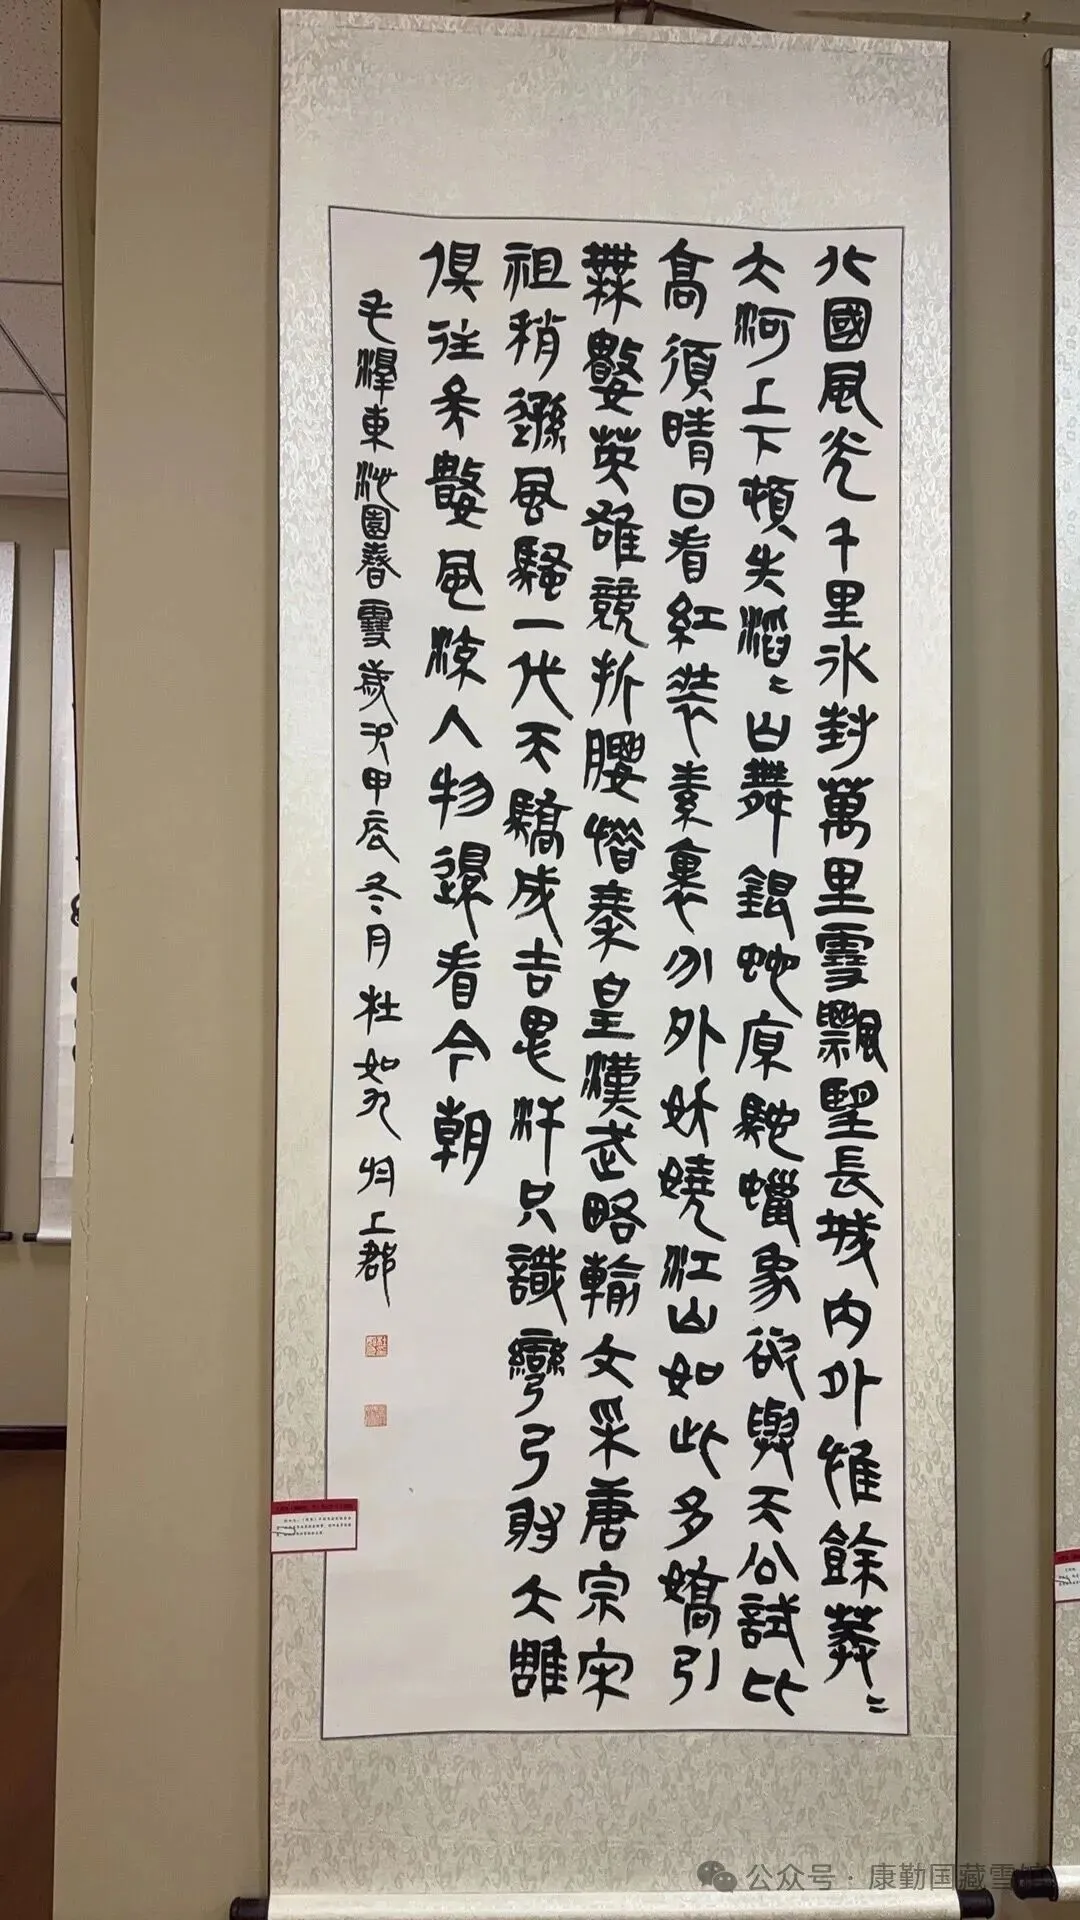 北國風光千里冰封萬里雪飄望長城內外惟餘莽〻
大河上下頓失滔〻山舞銀蛇原馳蠟象欲與天公試比
高須晴日看紅裝素裹分外妖嬈江山如此多嬌引
無數英雄競折腰惜秦皇漢武略輸文采唐宗宋
祖稍遜風騷一代天驕成吉思汗只識彎弓射大雕
俱往矣數風流人物還看今朝
毛澤東沁園春雪歲次甲辰冬月杜如九上郡
公众号·康勤国藏雪